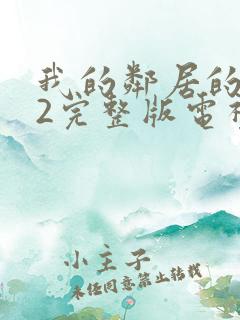 我的鄰居的
2完整版电视
小主子
未经同意禁止转载